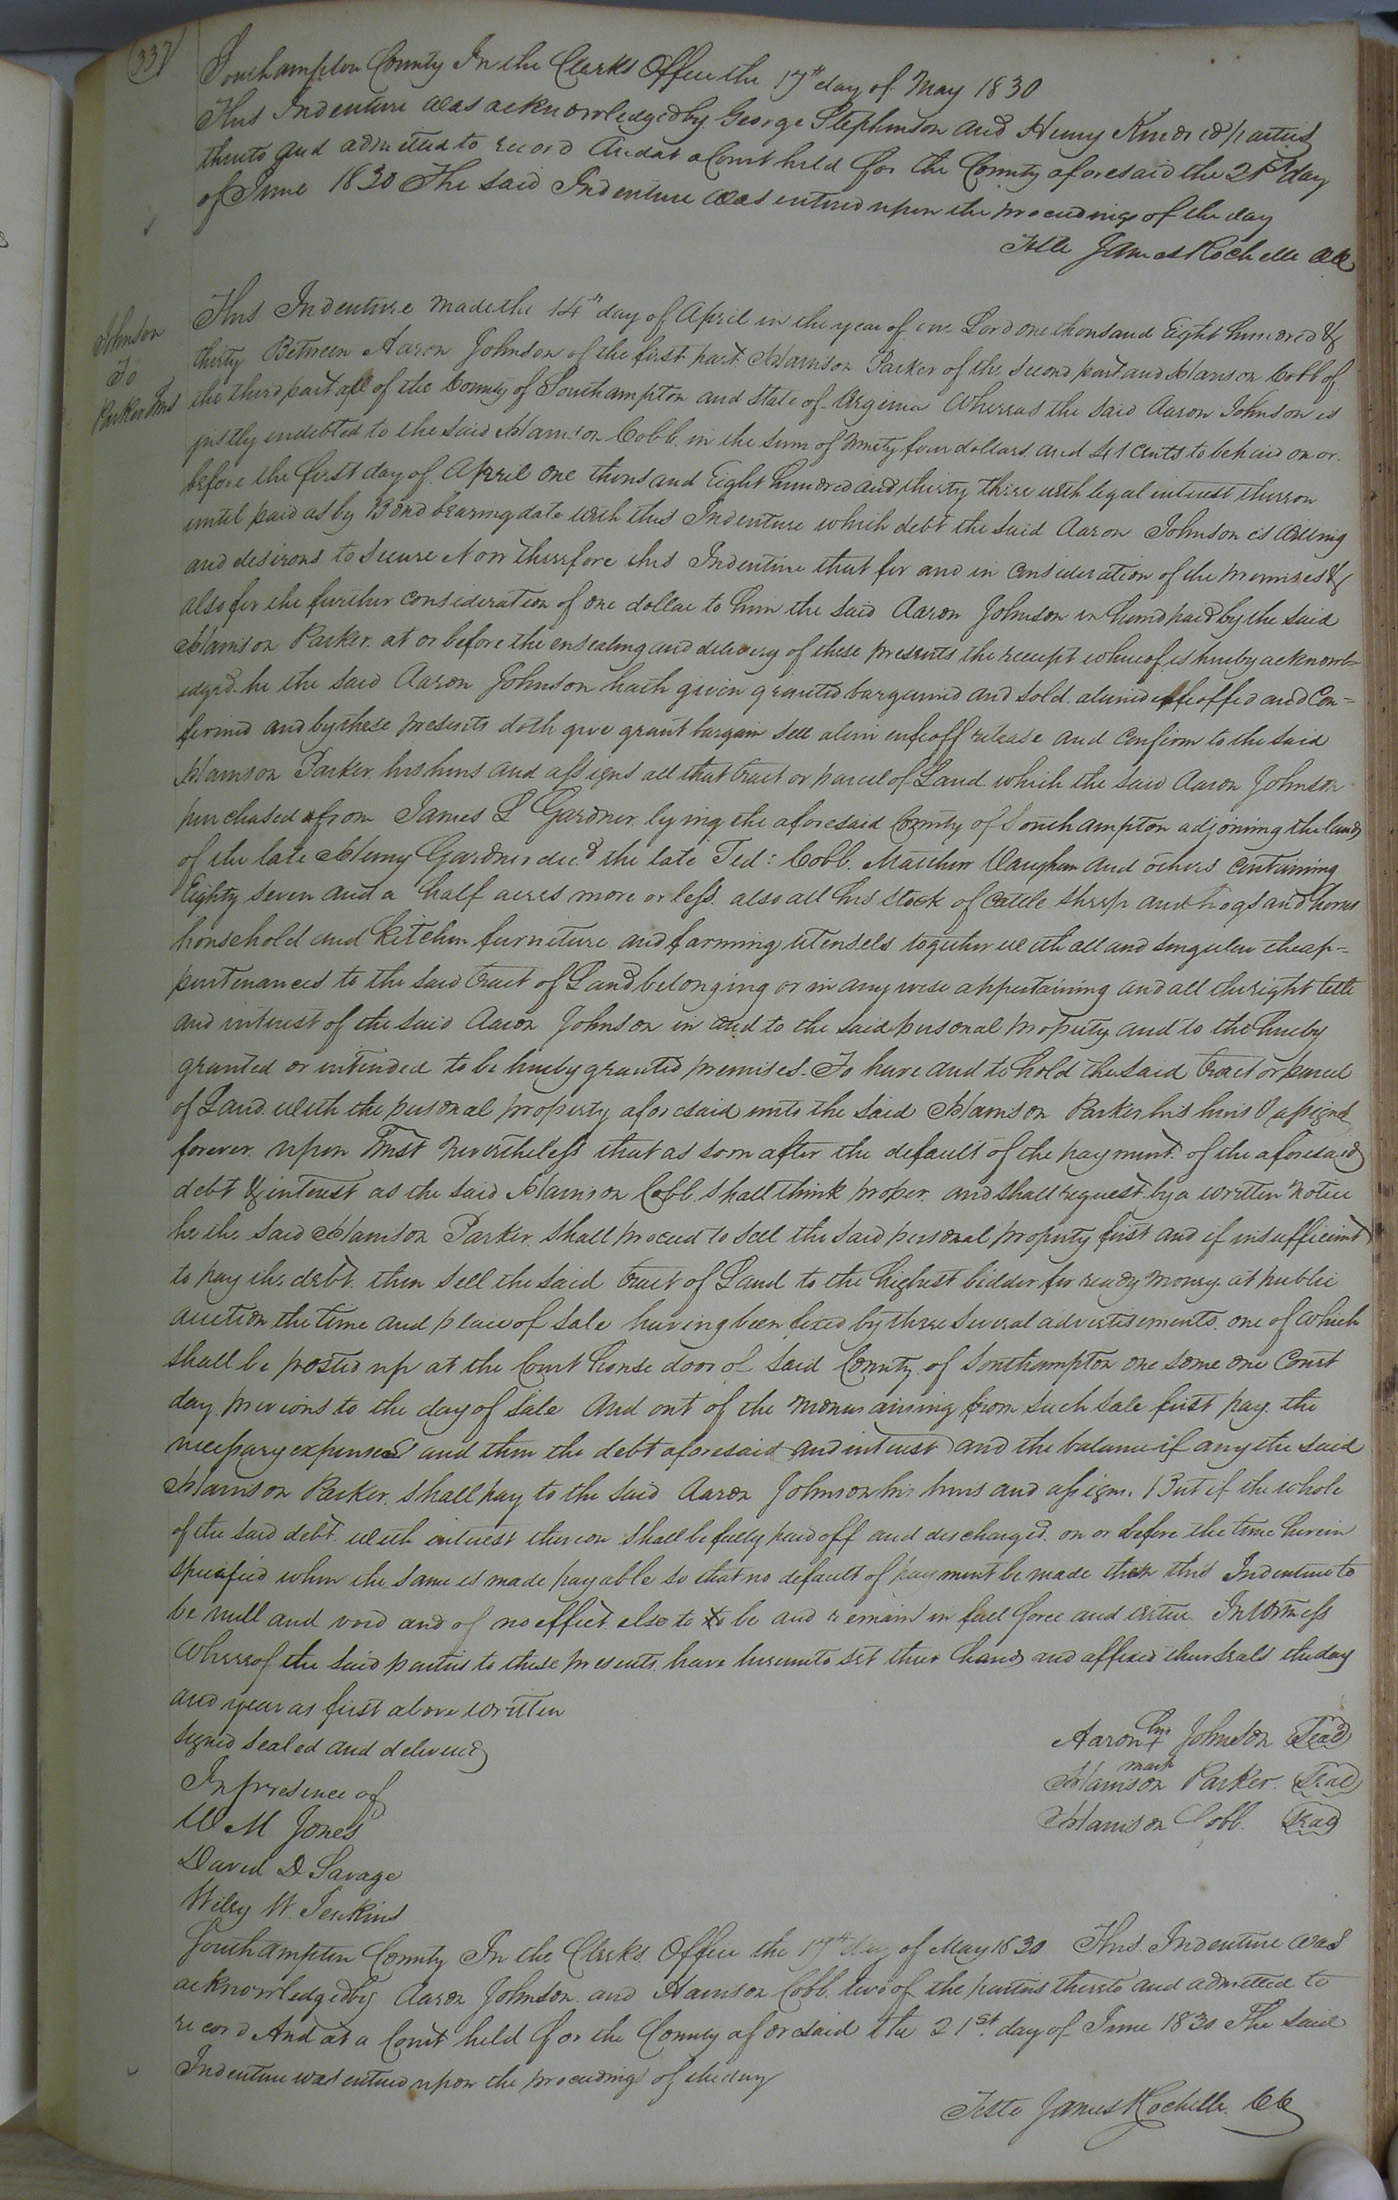 337
Southampton County In the Clerks Office the 17th day of May 1830
This Indenture was acknowledged by George Stephenson and Henry Kindred parties
thereto and admitted to record And at a Court held for the County aforesaid the 21st day
of June 1830 The said Indenture was entered upon the proceedings of the day
Teste James Rochelle CC
Johnson
To
Parker Trus
This Indenture made the 14th day of April in the year of our Lord one thousand Eight hundred &
thirty Between Aaron Johnson of the first part Harrison Parker of the second part and Harrison Cobb of
the third part all of the County of Southampton and State of Virginia Whereas the said Aaron Johnson is
justly indebted to the said Harrison Cobb in the sum of Ninety four dollars and 41 cents to be paid on or
before the first day of April one thousand Eight hundred and thirty three with legal interest thereon
until paid as by Bond bearing date with this Indenture which debt the said Aaron Johnson is willing
and desirous to secure Now therefore this Indenture that for and in consideration of the premises &
also for the further consideration of one dollar to him the said Aaron Johnson in hand paid by the said
Harrison Parker at or before the ensealing and delivery of these presents the receipt whereof is hereby acknowl=
edged he the said Aaron Johnson hath given granted bargained and sold aliened enfeoffed and Con=
firmed and by these presents doth give grant bargain sell alien enfeoff release and confirm to the said
Harrison Parker his heirs and assigns all that tract or parcel of Land which the said Aaron Johnson
purchased of from James L Gardner lying the aforesaid County of Southampton adjoining the lands
of the late Henry Gardner decd the late Ted: Cobb Matthew Vaughan and others containing
Eighty seven and a half acres more or less also all his stock of Cattle sheep and hogs and horses
household and kitchen furniture and farming utensels together with all and singular the ap=
purtenances to the said tract of Land belonging or in any wise appertaining and all the right title
and interest of the said Aaron Johnson in and to the said personal property and to the hereby
granted or intended to be hereby granted premises. To have and to hold the said tract or parcel
of Land with the personal property aforesaid unto the said Harrison Parker his heirs & assigns
forever upon Trust nevertheless that as soon after the default of the payment of the aforesaid
debt & interest as the said Harrison Cobb shall think proper and shall request by a written notice
he the said Harrison Parker shall proceed to sell the said personal property first and if insufficient
to pay the debt then sell the said tract of Land to the highest bidder for ready money at public
auction the time and place of sale having been fixed by three several advertisements one of which
shall be posted up at the Court house door of said County of Southampton one some one Court
day previous to the day of sale And out of the monies arising from such sale first pay the
necessary expenses and then the debt aforesaid and interest and the balance if any the said
Harrison Parker shall pay to the said Aaron Johnson his heirs and assigns But if the whole
of the said debt with interest thereon shall be fully paid off and discharged on or before the time herein
specified when the same is made payable so that no default of payment be made then this Indenture to
be null and void and of no effect else to to be and remain in full force and virtue In Witness
Whereof the said parties to these presents have hereunto set their hands and affixed their seals the day
and year as first above written
Signed sealed and delivered
In presence of
W M Jones
David D Savage
Wiley W. Jenkins
Aaron his + mark Johnson Seal
Harrison Parker Seal
Harrison Cobb Seal
Southampton County In the Clerks Office the 17th day of May 1830 This Indenture was
acknowledged by Aaron Johnson and Harrison Cobb two of the parties thereto and admitted to
record And at a Court held for the County aforesaid the 21st day of June 1830 The said
Indenture was entered upon the proceedings of the day
Teste James Rochelle CC